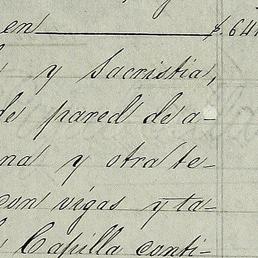 en $ 64
y Sacristia,
de pared de a-
na y otra te-
con vigas y ta-
Capilla conti-